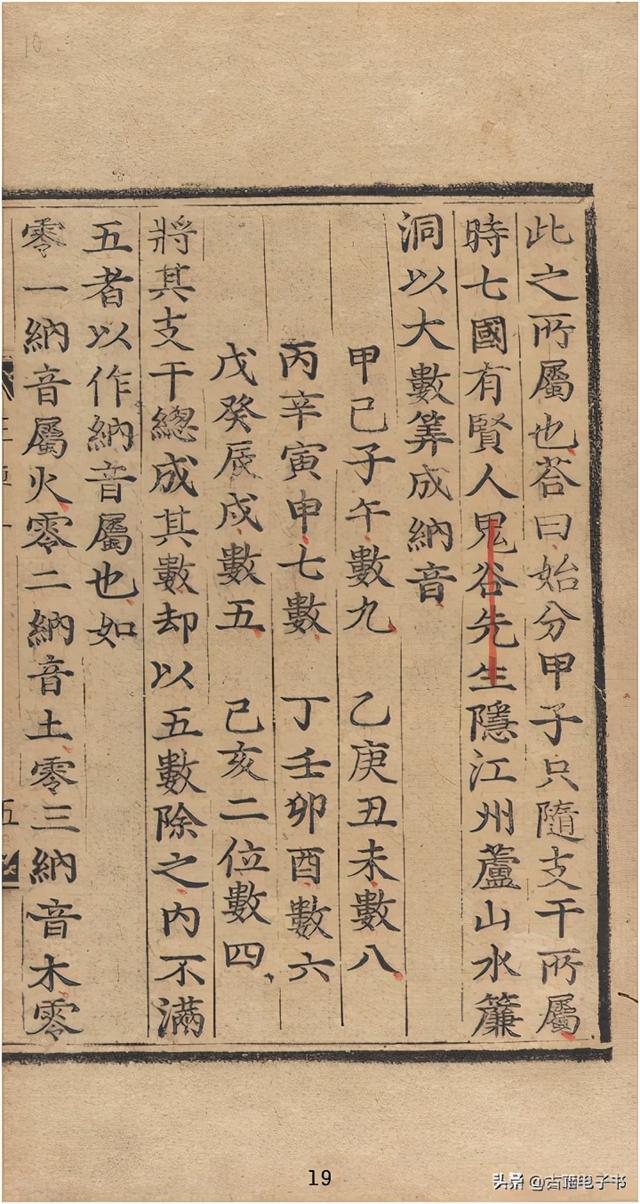 此之所屬也荅曰始分甲子只隨支干所屬
時七國有賢人鬼谷先生隱江州蘆山水簾
洞以大數筭成納音
甲己子午數九　乙庚丑未數八
丙辛寅申七數　丁壬卯酉數六
戊癸辰戌數五　巳亥二位數四
將其支干總成其數却以五數除之內不滿
五者以作納音屬也如
零一納音屬火零二納音土零三納音木零
五
10
19
头条 @古猫电子书